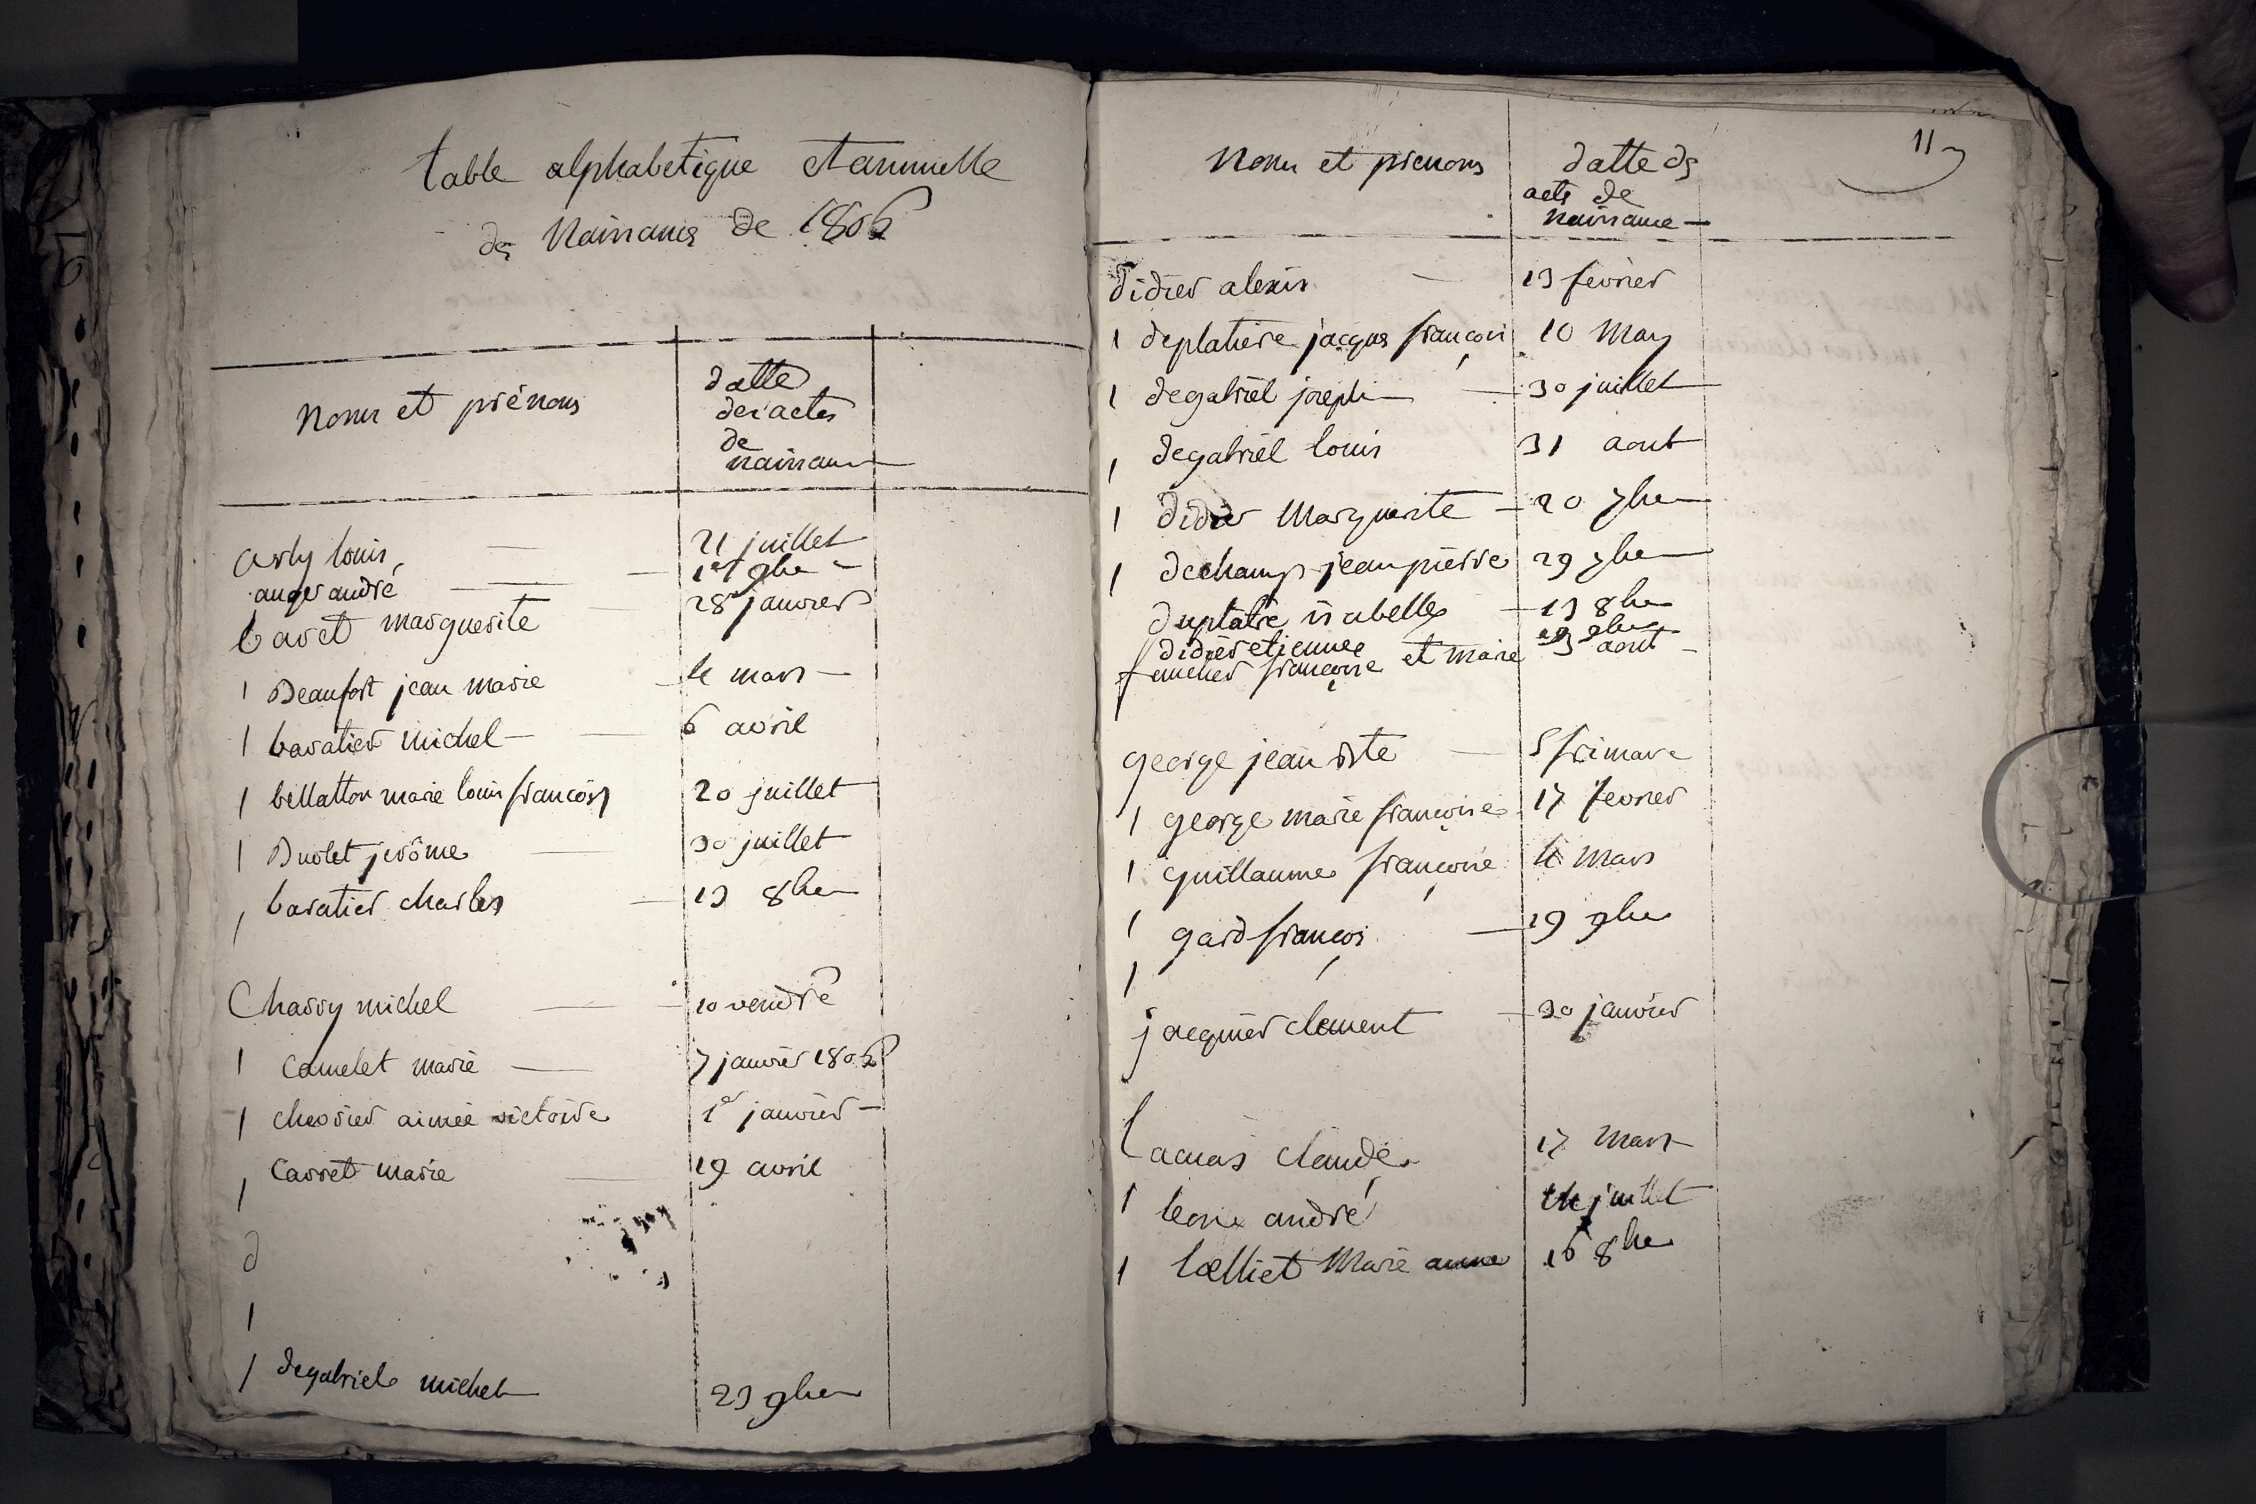 table alphabetique et annuelle
des Naissances de 1806
Noms et prénoms
datte
des actes
de
naissance
arly louis 21 juillet
auger andré 1er 9bre
baret marguerite 28 janvier
1 Beaufort jean marie 4 mars
1 baratier michel 6 avril
1 bellatton marie louis françois 20 juillet
1 Buolet jerôme 30 juillet
1 baratier charles 13 8bre
Chassy michel 10 vendre
1 camelet marie 7 janvier 1806
1 chevrier aimée victoire 1er janvier
1 Carret marie 19 avril
d
1
1 degabriel michel 23 9bre
11
Noms et prenoms
datte des
acts de
naissance
didier alexis 13 fevrier
1 deplatiere jacques françois 10 May
1 degabriel joseph 30 juillet
1 degabriel louis 31 aout
1 didier Marguerite 20 7bre
1 dechamps jean pierre 29 7bre
duplatre isabelle 13 8bre
didier etienne 23 9bre
françoise et marie aout
george jean bte 5 frimare
1 george marie françoise 17 fevrier
1 guillaume françoise 4 Mars
1 gard françois 19 9bre
1
jacquier clement 30 janvier
lacuas claude 17 Mars
1 leone andré juillet
1 lælliet Marie anne 16 8bre